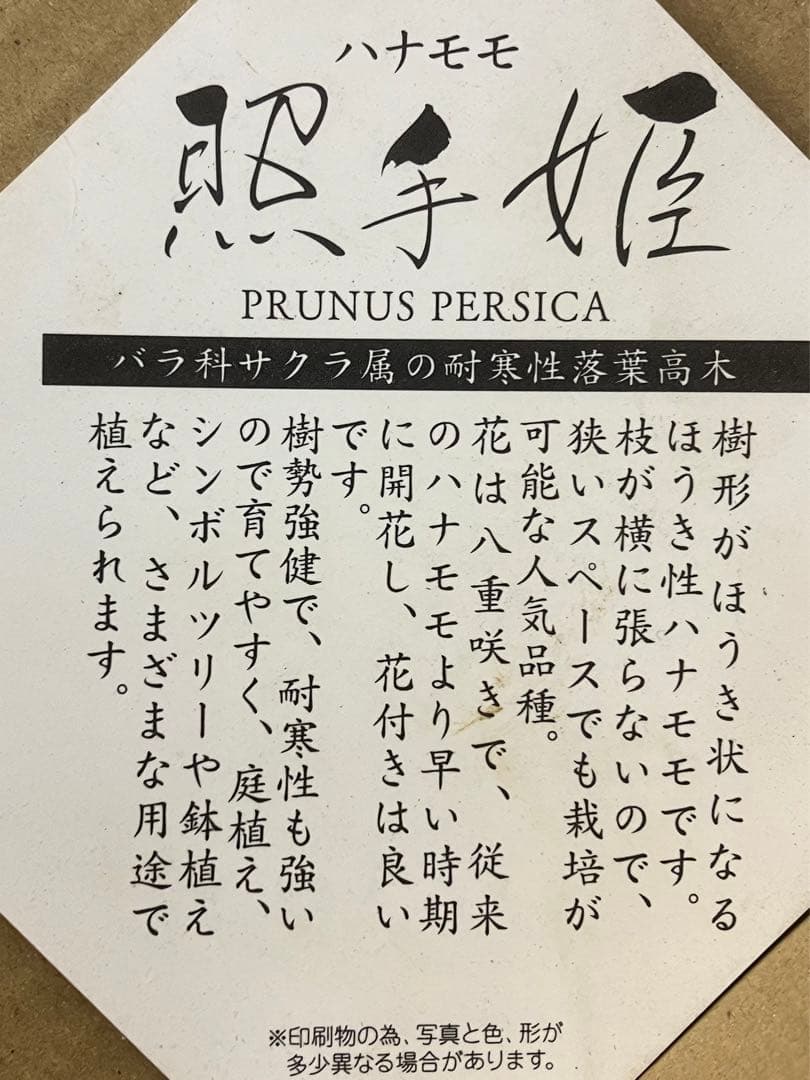 ハナモモ
照手姫
PRUNUS PERSICA
バラ科サクラ属の耐寒性落葉高木
樹形がほうき状になる
ほうき性ハナモモです。
枝が横に張らないので、
狭いスペースでも栽培が
可能な人気品種。
花は八重咲きで、従来
のハナモモより早い時期
に開花し、花付きは良い
です。
樹勢強健で、耐寒性も強い
ので育てやすく、庭植え、
シンボルツリーや鉢植え
など、さまざまな用途で
植えられます。
※印刷物の為、写真と色、形が
多少異なる場合があります。